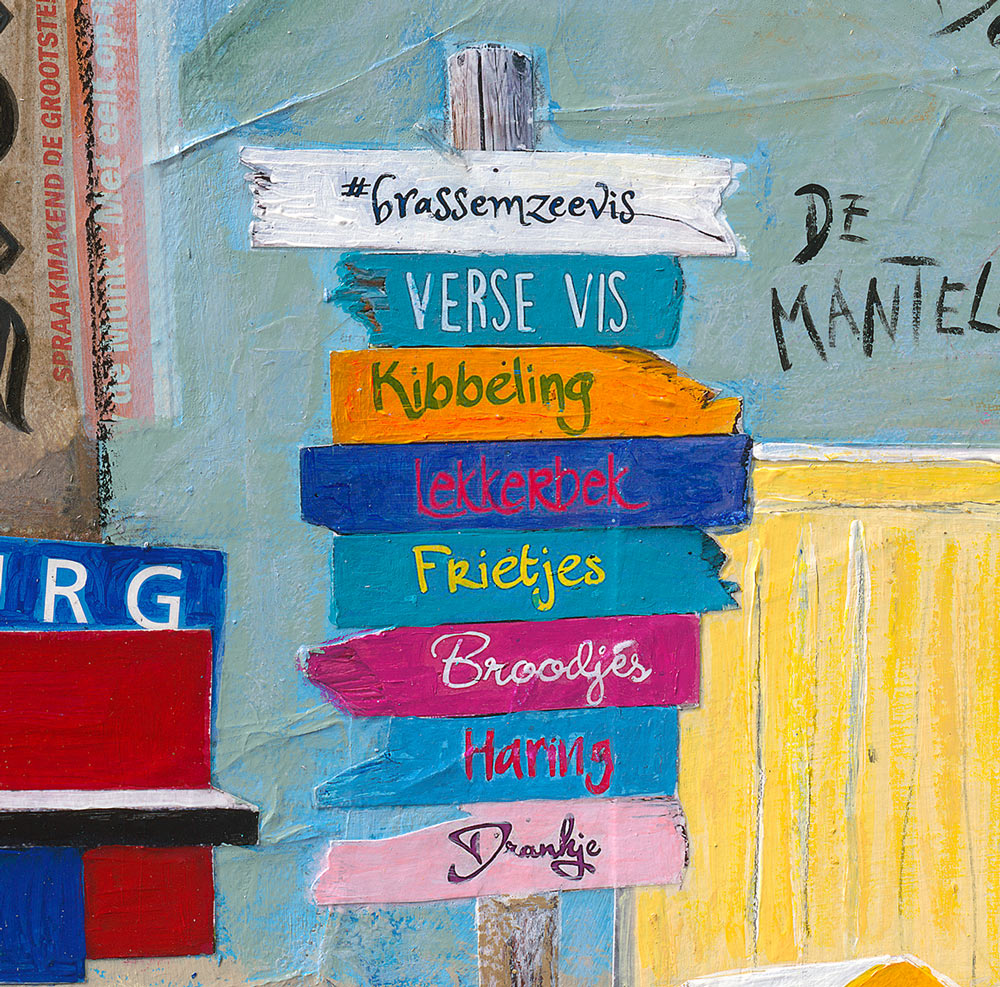 SPRAAKMAKEND DE GROOTSTE
de Munk. Met eelt op
#brassemzeevis
VERSE VIS
Kibbeling
Lekkerbek
Frietjes
Broodjes
Haring
Drankje
DE
MANTEL
RG